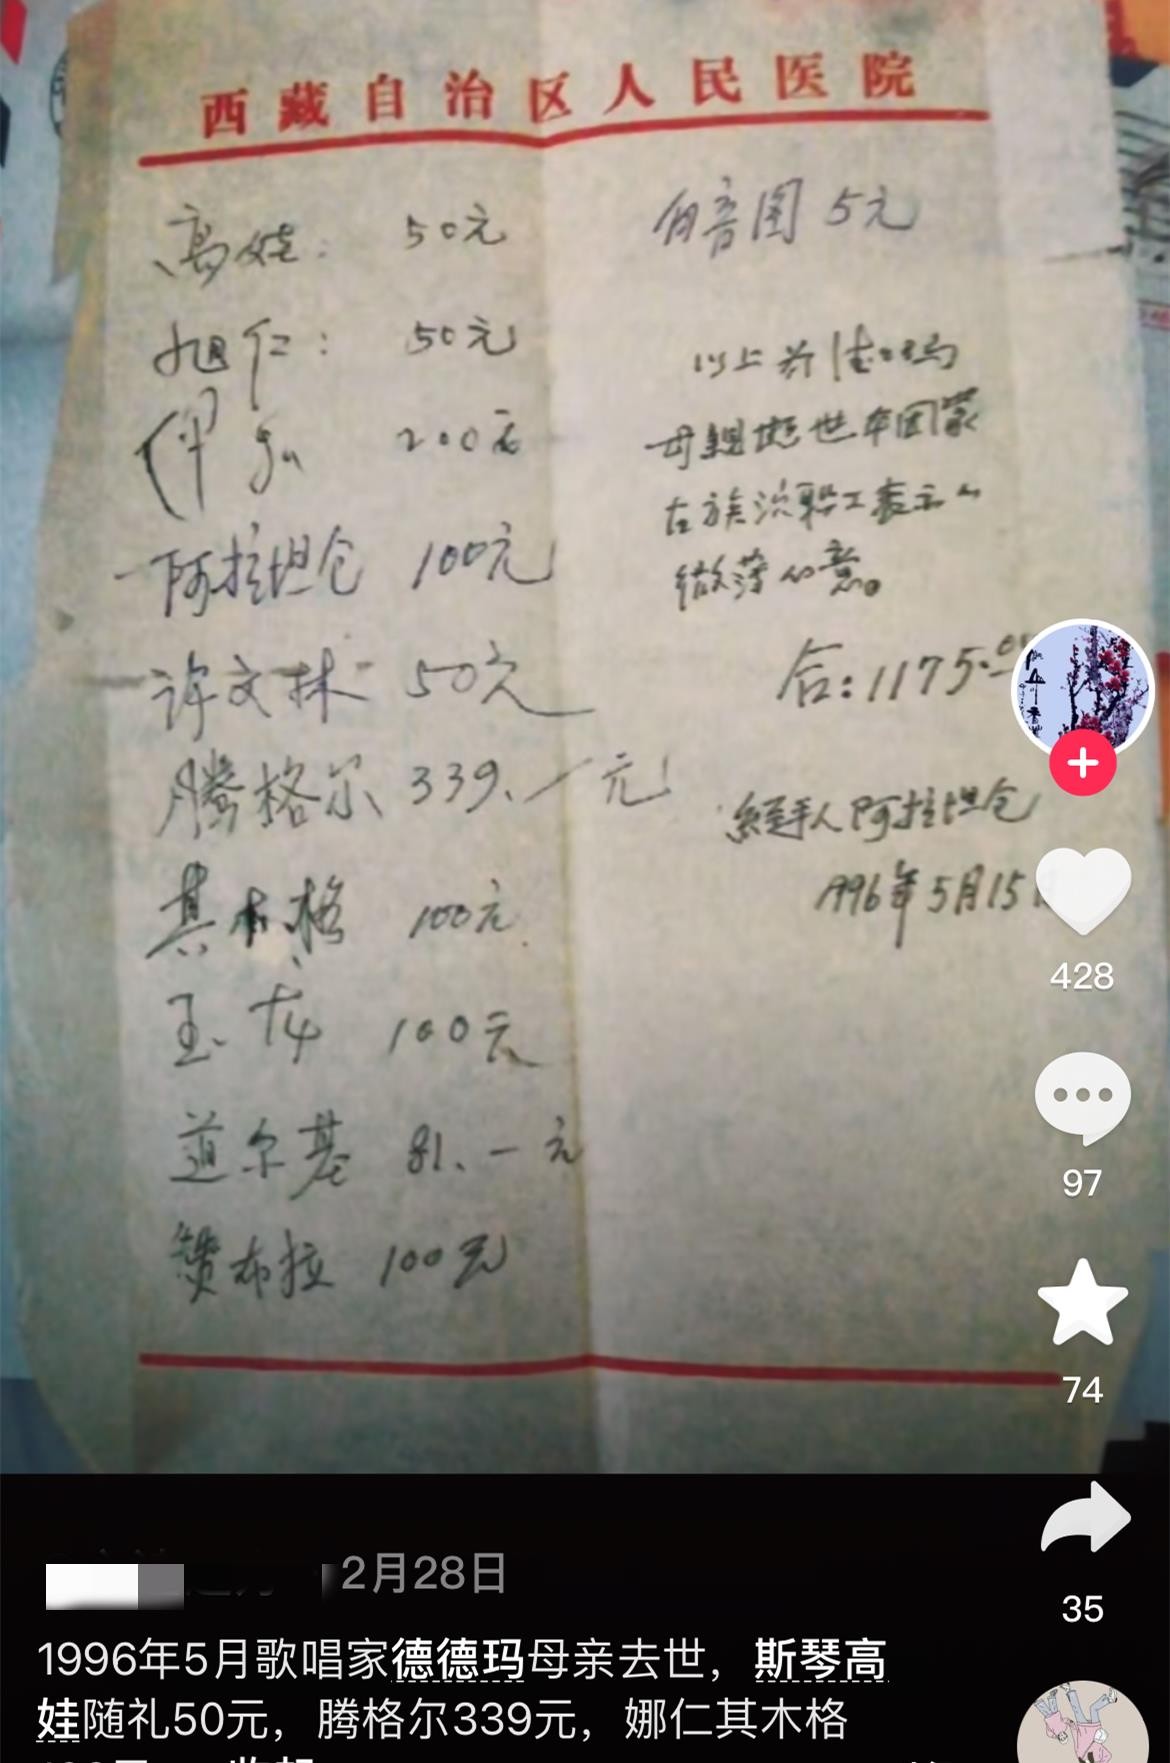 西藏自治区人民医院
高娃: 50元
旭仁: 50元
200元
阿拉坦仓 100元
许文林 50元
腾格尔 339.一元
其木格 100元
玉龙 100元
道尔基 81.一元
赞布拉 100元
白音图 5元
以上为德德玛
母親逝世本团蒙
古族演职工表示的
微薄心意。
合:1175.
经手人阿拉坦仓
1996年5月15
428
97
74
35
2月28日
1996年5月歌唱家德德玛母亲去世，斯琴高
娃随礼50元，腾格尔339元，娜仁其木格